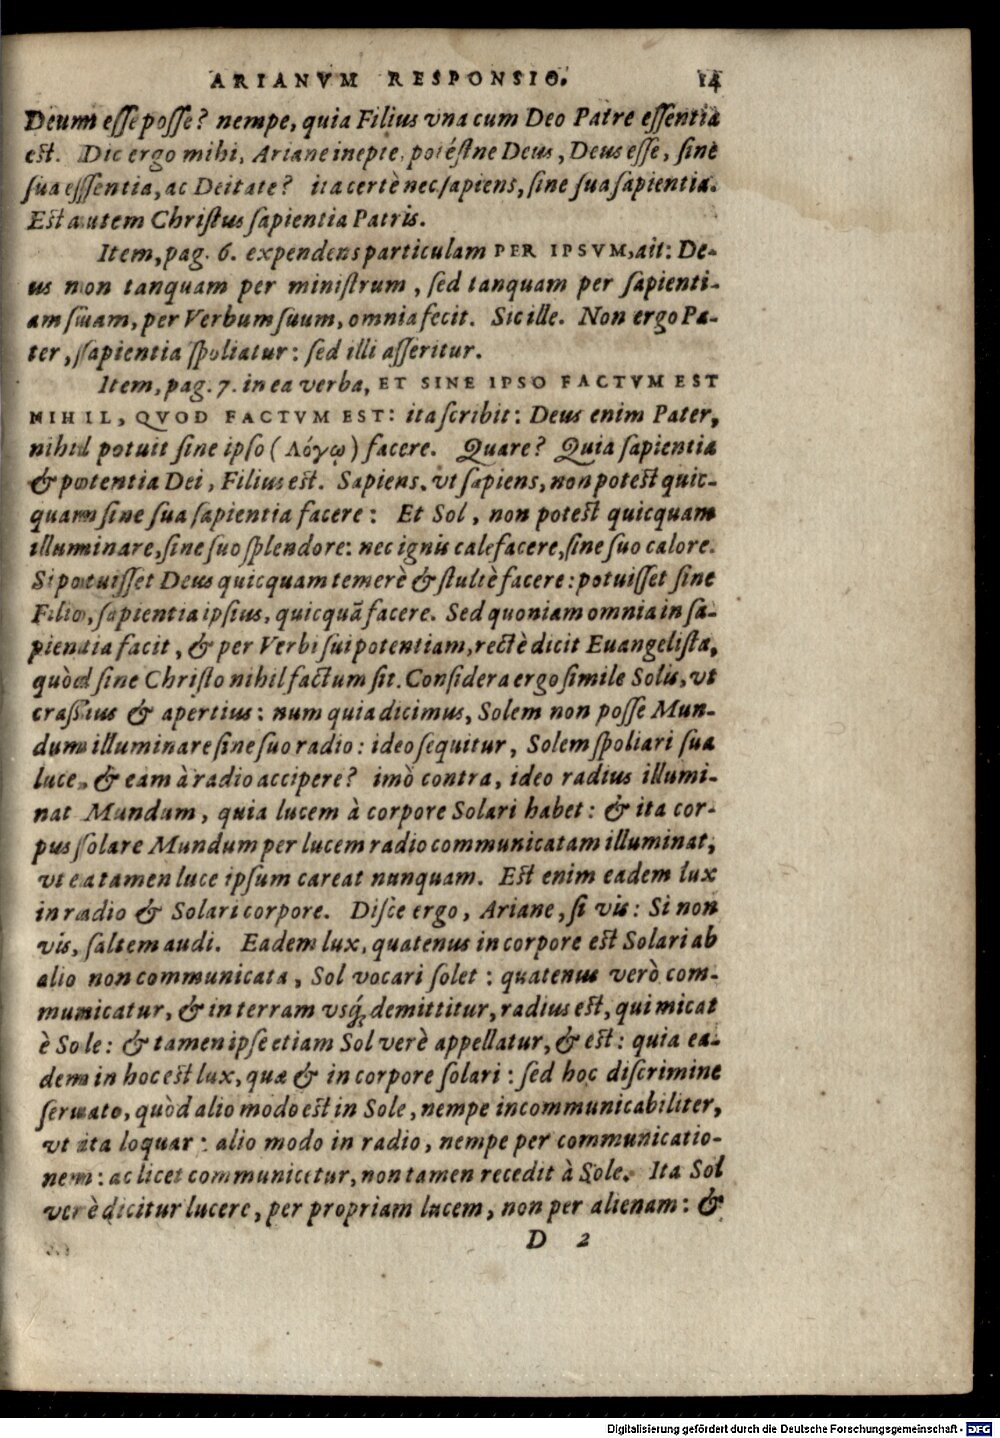 ARIANVM RESPONSIO. 14
Deum esse posse? nempe, quia Filius vna cum Deo Patre essentia
est. Dic ergo mihi, Ariane inepte, potéstne Deus, Deus esse, sine
sua essentia, ac Deitate? ita certè nec sapiens, sine sua sapientia.
Est autem Christus sapientia Patris.
Item, pag. 6. expendens particulam PER IPSVM, ait: De-
us non tanquam per ministrum, sed tanquam per sapienti-
am suam, per Verbum suum, omnia fecit. Sic ille. Non ergo Pa-
ter, sapientia spoliatur: sed illi asseritur.
Item, pag. 7. in ea verba, ET SINE IPSO FACTVM EST
NIHIL, QVOD FACTVM EST: ita scribit: Deus enim Pater,
nihil potuit sine ipso (Λόγῳ) facere. Quare? Quia sapientia
& potentia Dei, Filius est. Sapiens, vt sapiens, non potest quic-
quam sine sua sapientia facere: Et Sol, non potest quicquam
illuminare, sine suo splendore: nec ignis calefacere, sine suo calore.
Si potuisset Deus quicquam temerè & stultè facere: potuisset sine
Filio, sapientia ipsius, quicquã facere. Sed quoniam omnia in sa-
pientia facit, & per Verbi sui potentiam, rectè dicit Euangelista,
quòd sine Christo nihil factum sit. Considera ergo simile Solis, vt
crassius & apertius: num quia dicimus, Solem non posse Mun-
dum illuminare sine suo radio: ideo sequitur, Solem spoliari sua
luce, & eam à radio accipere? imò contra, ideo radius illumi-
nat Mundum, quia lucem à corpore Solari habet: & ita cor-
pus solare Mundum per lucem radio communicatam illuminat,
vt ea tamen luce ipsum careat nunquam. Est enim eadem lux
in radio & Solari corpore. Disce ergo, Ariane, si vis: Si non
vis, saltem audi. Eadem lux, quatenus in corpore est Solari ab
alio non communicata, Sol vocari solet: quatenus verò com-
municatur, & in terram vsq́; demittitur, radius est, qui micat
è Sole: & tamen ipse etiam Sol verè appellatur, & est: quia ea-
dem in hoc est lux, quæ & in corpore solari: sed hoc discrimine
seruato, quòd alio modo est in Sole, nempe incommunicabiliter,
vt ita loquar: alio modo in radio, nempe per communicatio-
nem: ac licet communicetur, non tamen recedit à Sole. Ita Sol
verè dicitur lucere, per propriam lucem, non per alienam: &
D 2
Digitalisierung gefördert durch die Deutsche Forschungsgemeinschaft - DFG